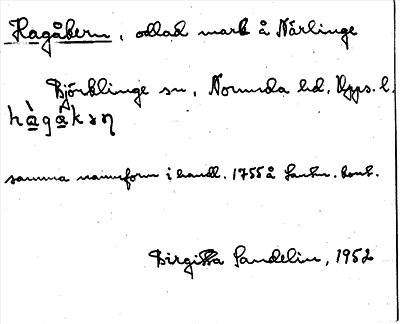 Hagåkern, odlad mark å Närlinge
Björklinge sn, Norunda hd, Upps. l.
hàgåkɘƞ
samma namnform i handl. 1755 å Lantm. kont.
Birgitta Sandelin, 1952